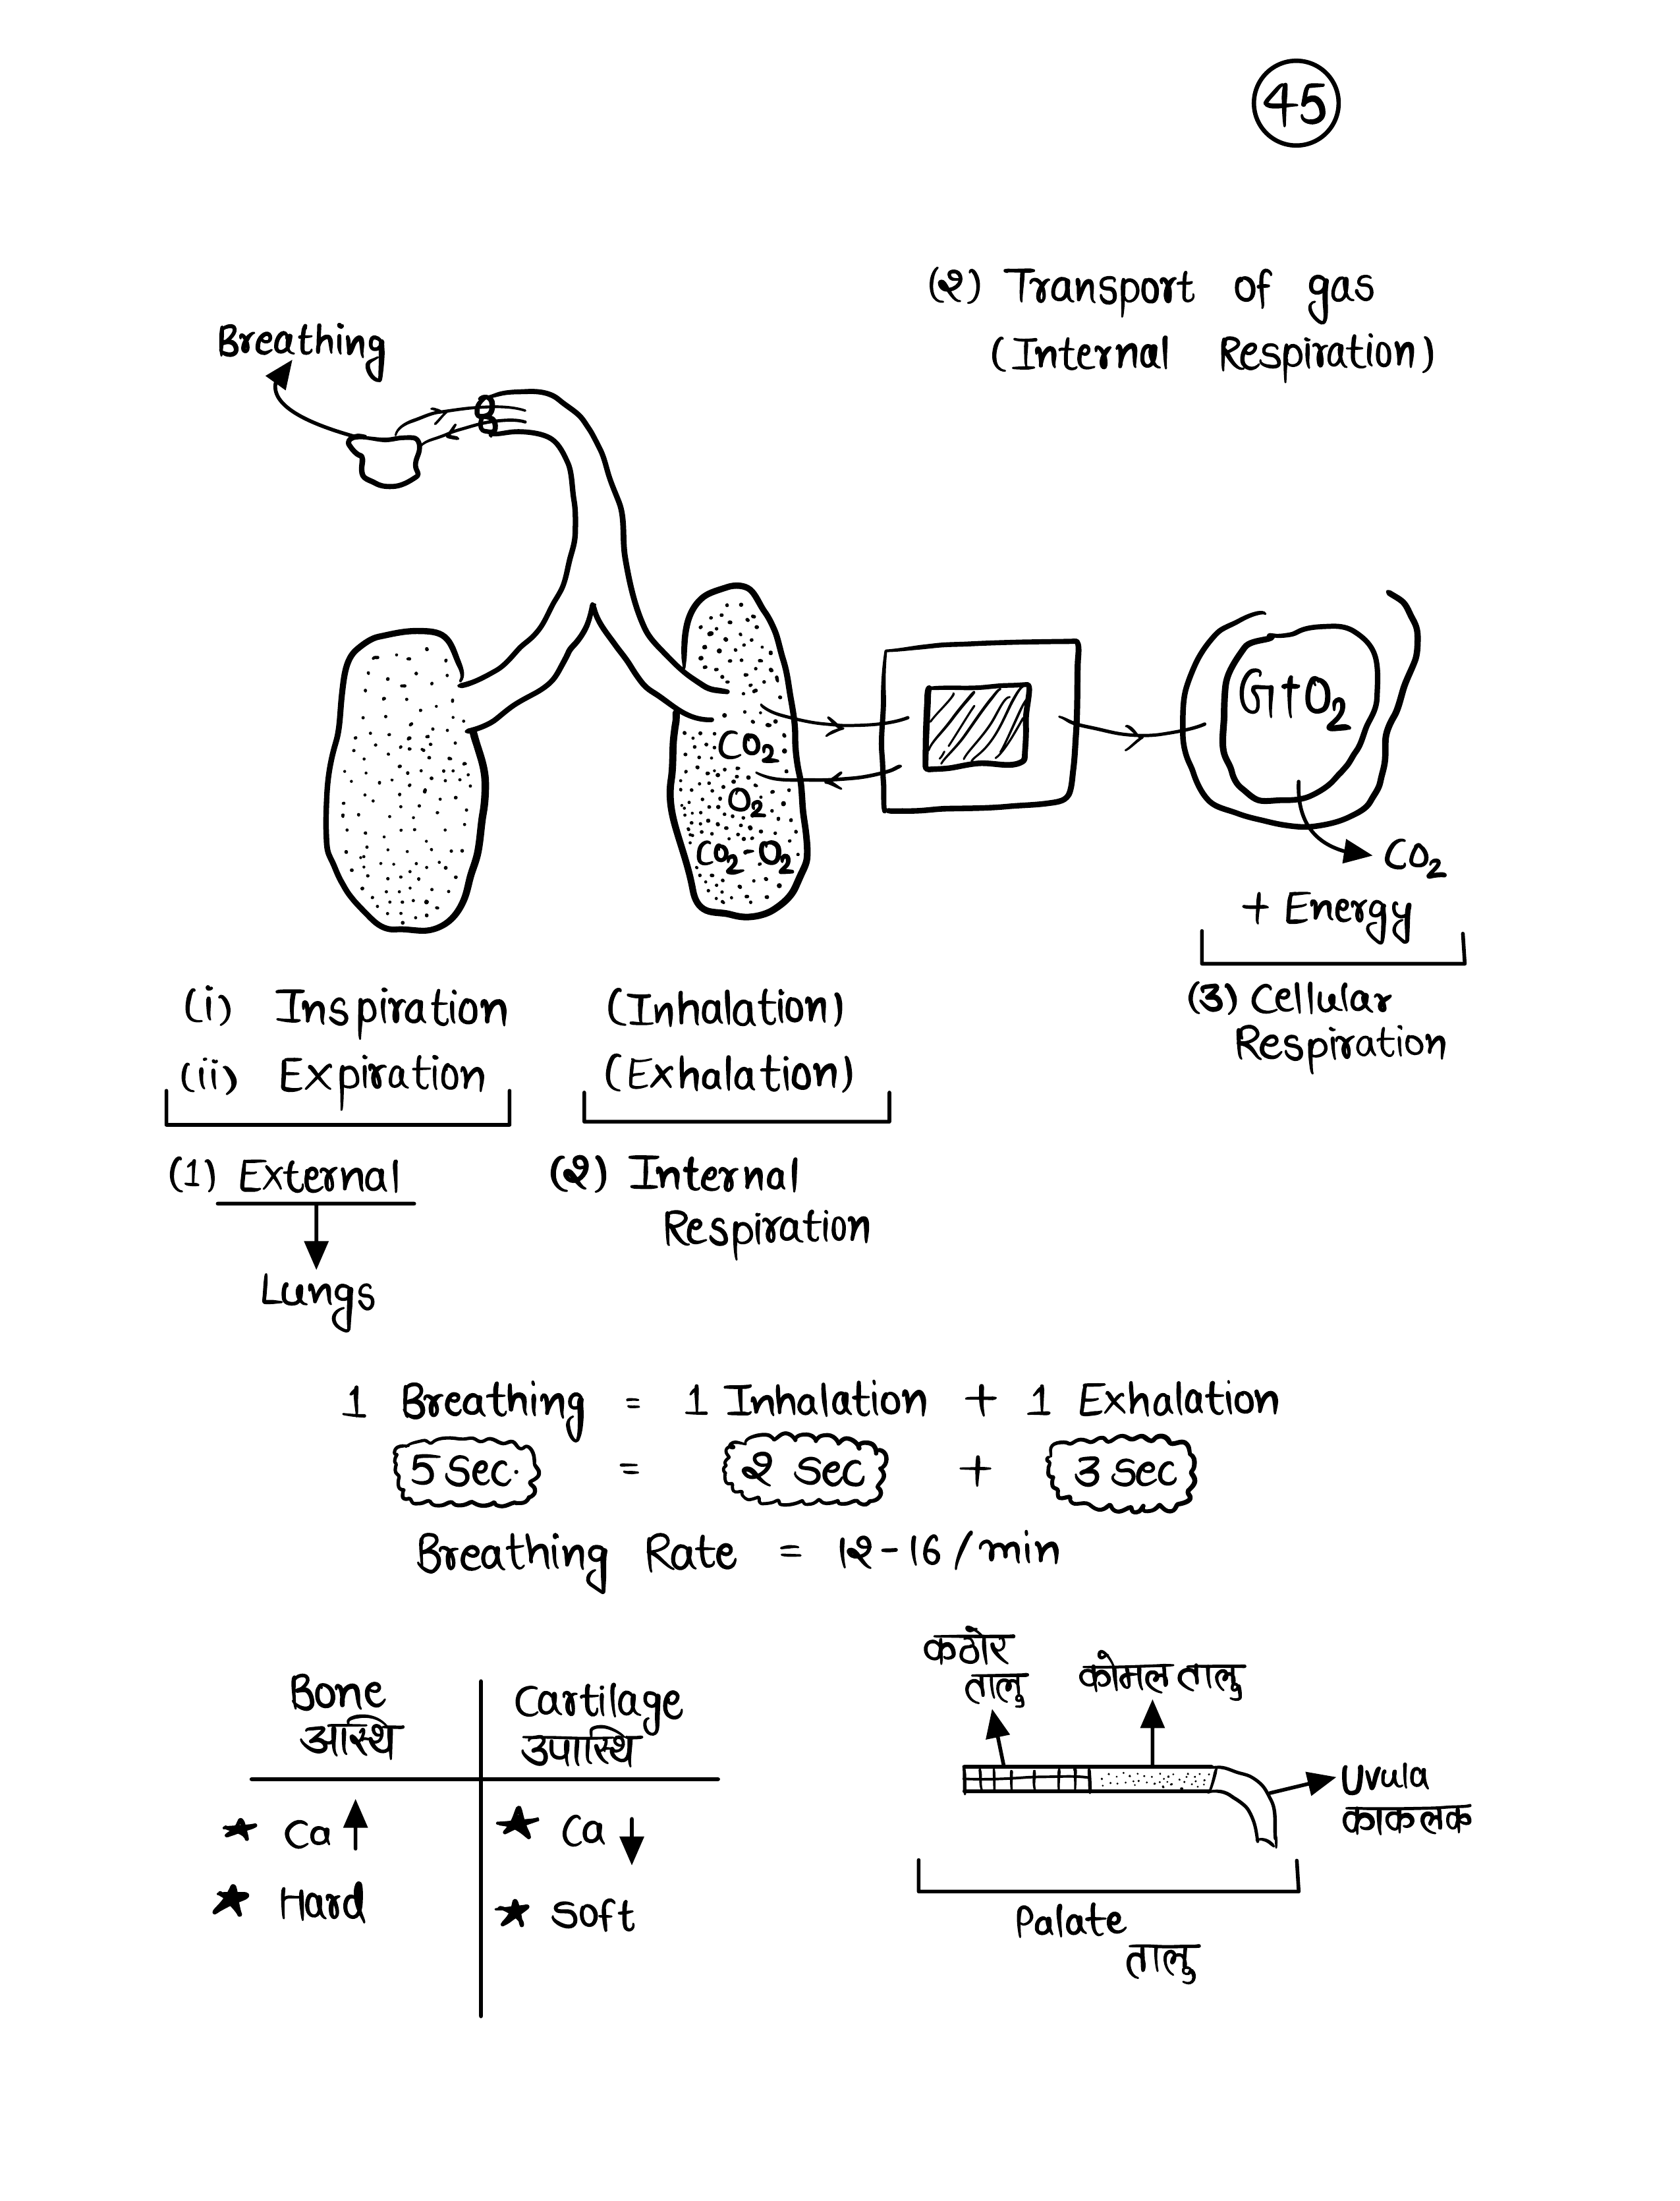 45
(2) Transport of gas
(Internal Respiration)
Breathing
G+O2
CO2
O2
CO2-O2
CO2
+ Energy
(i) Inspiration (Inhalation)
(ii) Expiration (Exhalation)
(3) Cellular
Respiration
(1) External
(2) Internal
Respiration
Lungs
1 Breathing = 1 Inhalation + 1 Exhalation
5 Sec. = 2 Sec + 3 Sec
Breathing Rate = 12-16/min
Bone
अस्थि
Cartilage
उपास्थि
★ Ca ↑
★ Ca ↓
★ Hard
★ Soft
कठोर
तालु
कोमल तालु
Uvula
काकलक
Palate
तालु